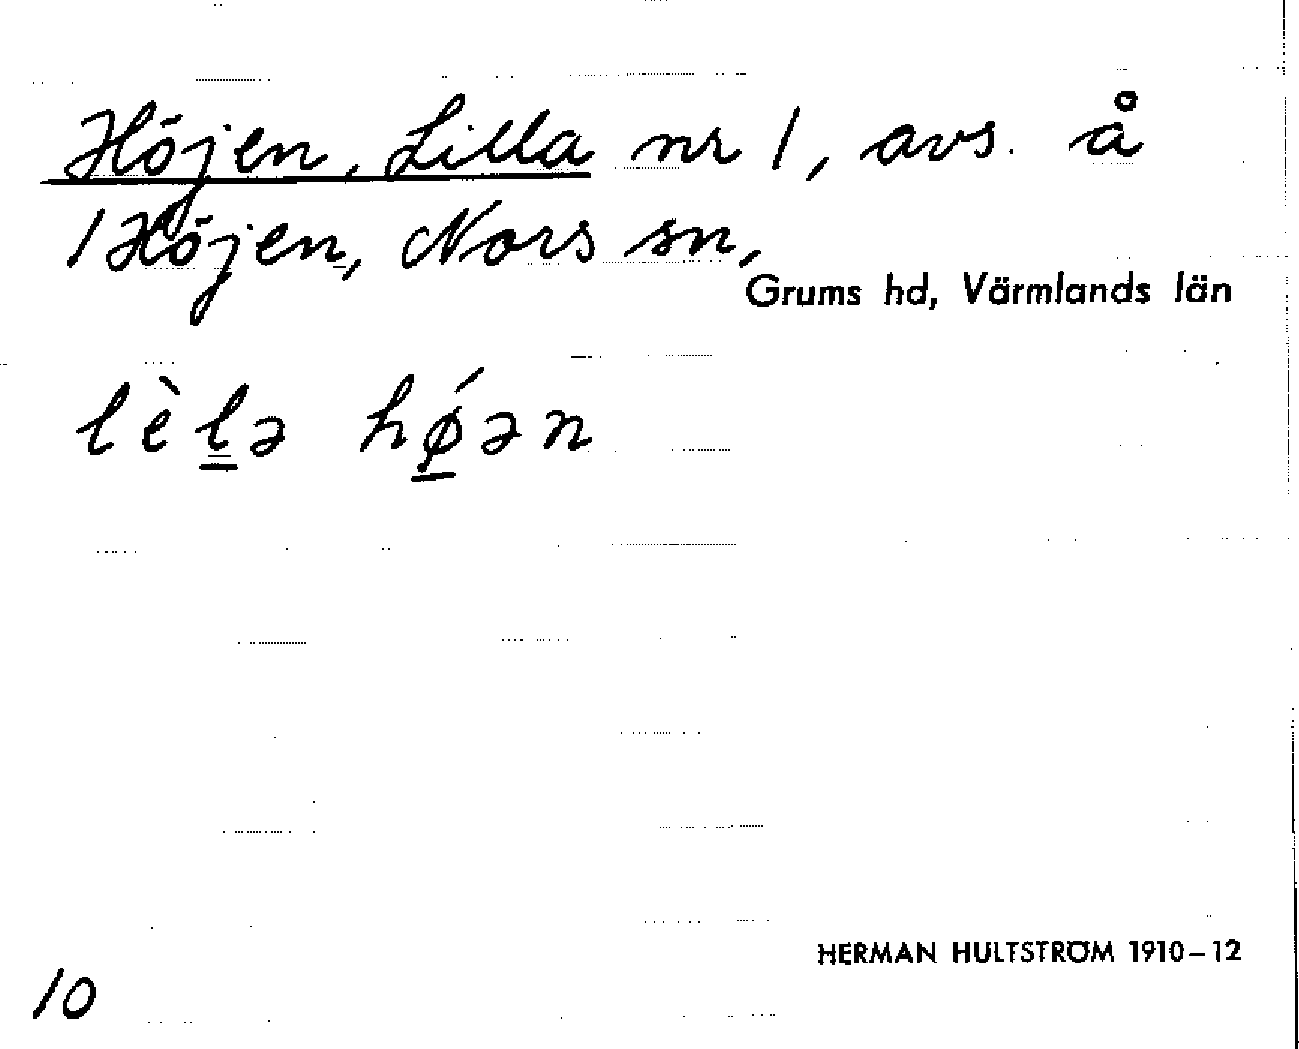 Höjen, Lilla nr 1, avs. å
1 Höjen, Nors sn,
Grums hd, Värmlands län
lèl̳ə hǿ̲ən
HERMAN HULTSTRÖM 1910–12
10